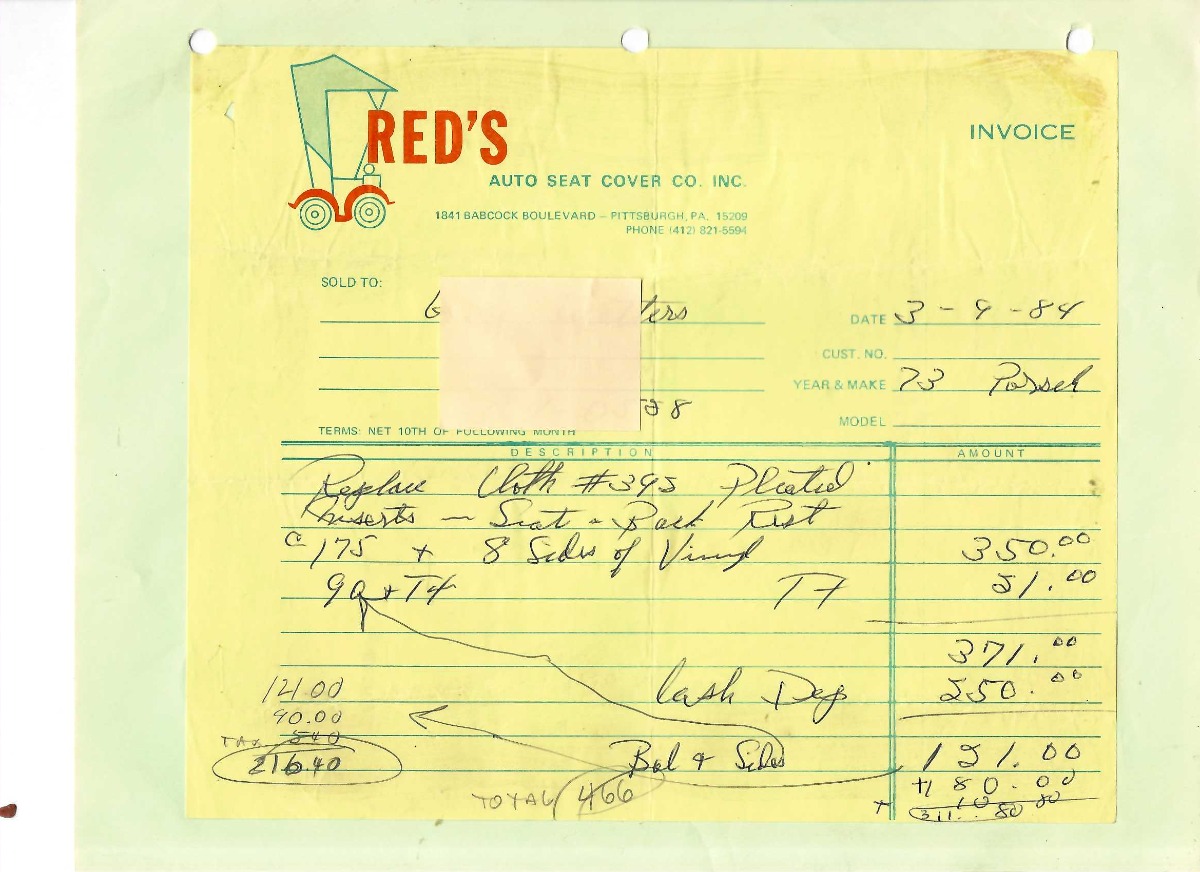 RED'S
INVOICE
AUTO SEAT COVER CO. INC.
1841 BABCOCK BOULEVARD – PITTSBURGH, PA. 15209
PHONE (412) 821-5594
SOLD TO:
ters
DATE 3 - 9 - 84
CUST. NO.
YEAR & MAKE 73
58
MODEL
TERMS: NET 10TH OF FOLLOWING MONTH
DESCRIPTION AMOUNT
Replace Cloth #395 Pleated
Inserts – Seat - Back Rest
175 + 8 Sides of Vinyl 350.00
90 + 21.00
371.00
121.00
Cash Dep 250.00
90.00
TAX 5.40
Bal & Sides 121.00
216.40
+180.00
TOTAL 466
+ 10 80
311.80